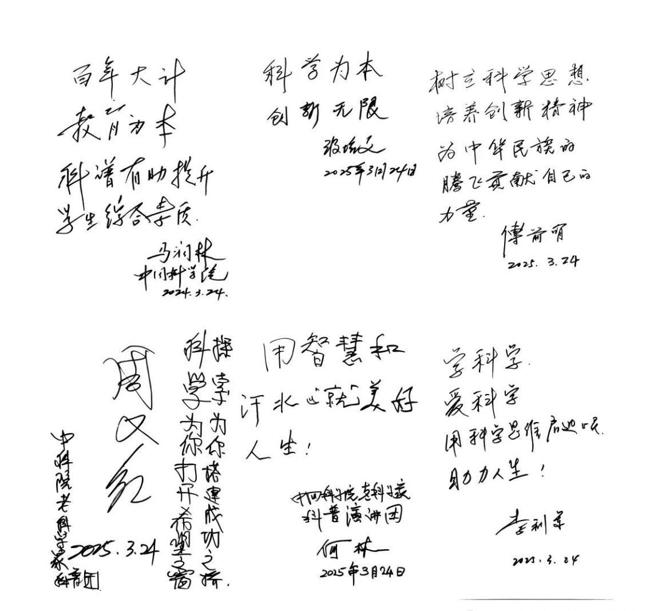 百年大计
教育为本
科普有助提升
学生综合素质.
马润林
中国科学院
2024.3.24.
科学为本
创新无限
2025年3月24日
树立科学思想
培养创新精神
为中华民族的
腾飞贡献自己的
力量.
傅前明
2025.3.24
探索为你搭建成功之桥
科学为你打开希望之窗
周又红
2025.3.24
中科院老科学家
科普团
用智慧和
汗水造就美好
人生!
中国科学院老科学家
科普演讲团
何林
2025年3月24日
学科学.
爱科学
用科学思维启迪
助力人生!
李利军
2025.3.24